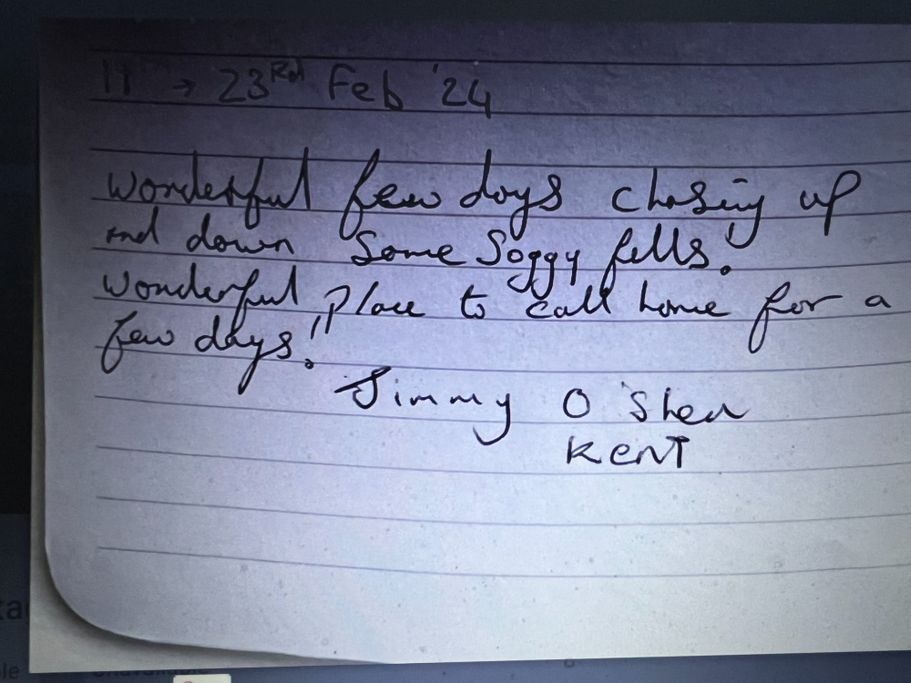 11 → 23Rd Feb '24
Wonderful few days chasing up
and down some soggy fells.
Wonderful place to call home for a
few days!
Jimmy O'Shea
KENT